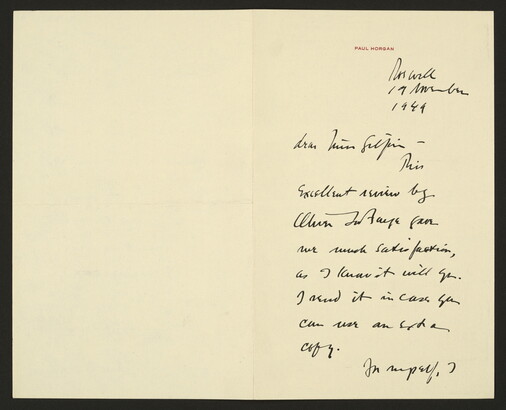 PAUL HORGAN
Roswell
19 November
1949
dear Miss Gilpin —
This
excellent review by
Oliver La Farge gave
me much satisfaction,
as I know it will you.
I send it in case you
can use an extra
copy.
For myself, I